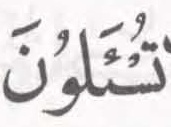 تُسْـَٔلُونَ